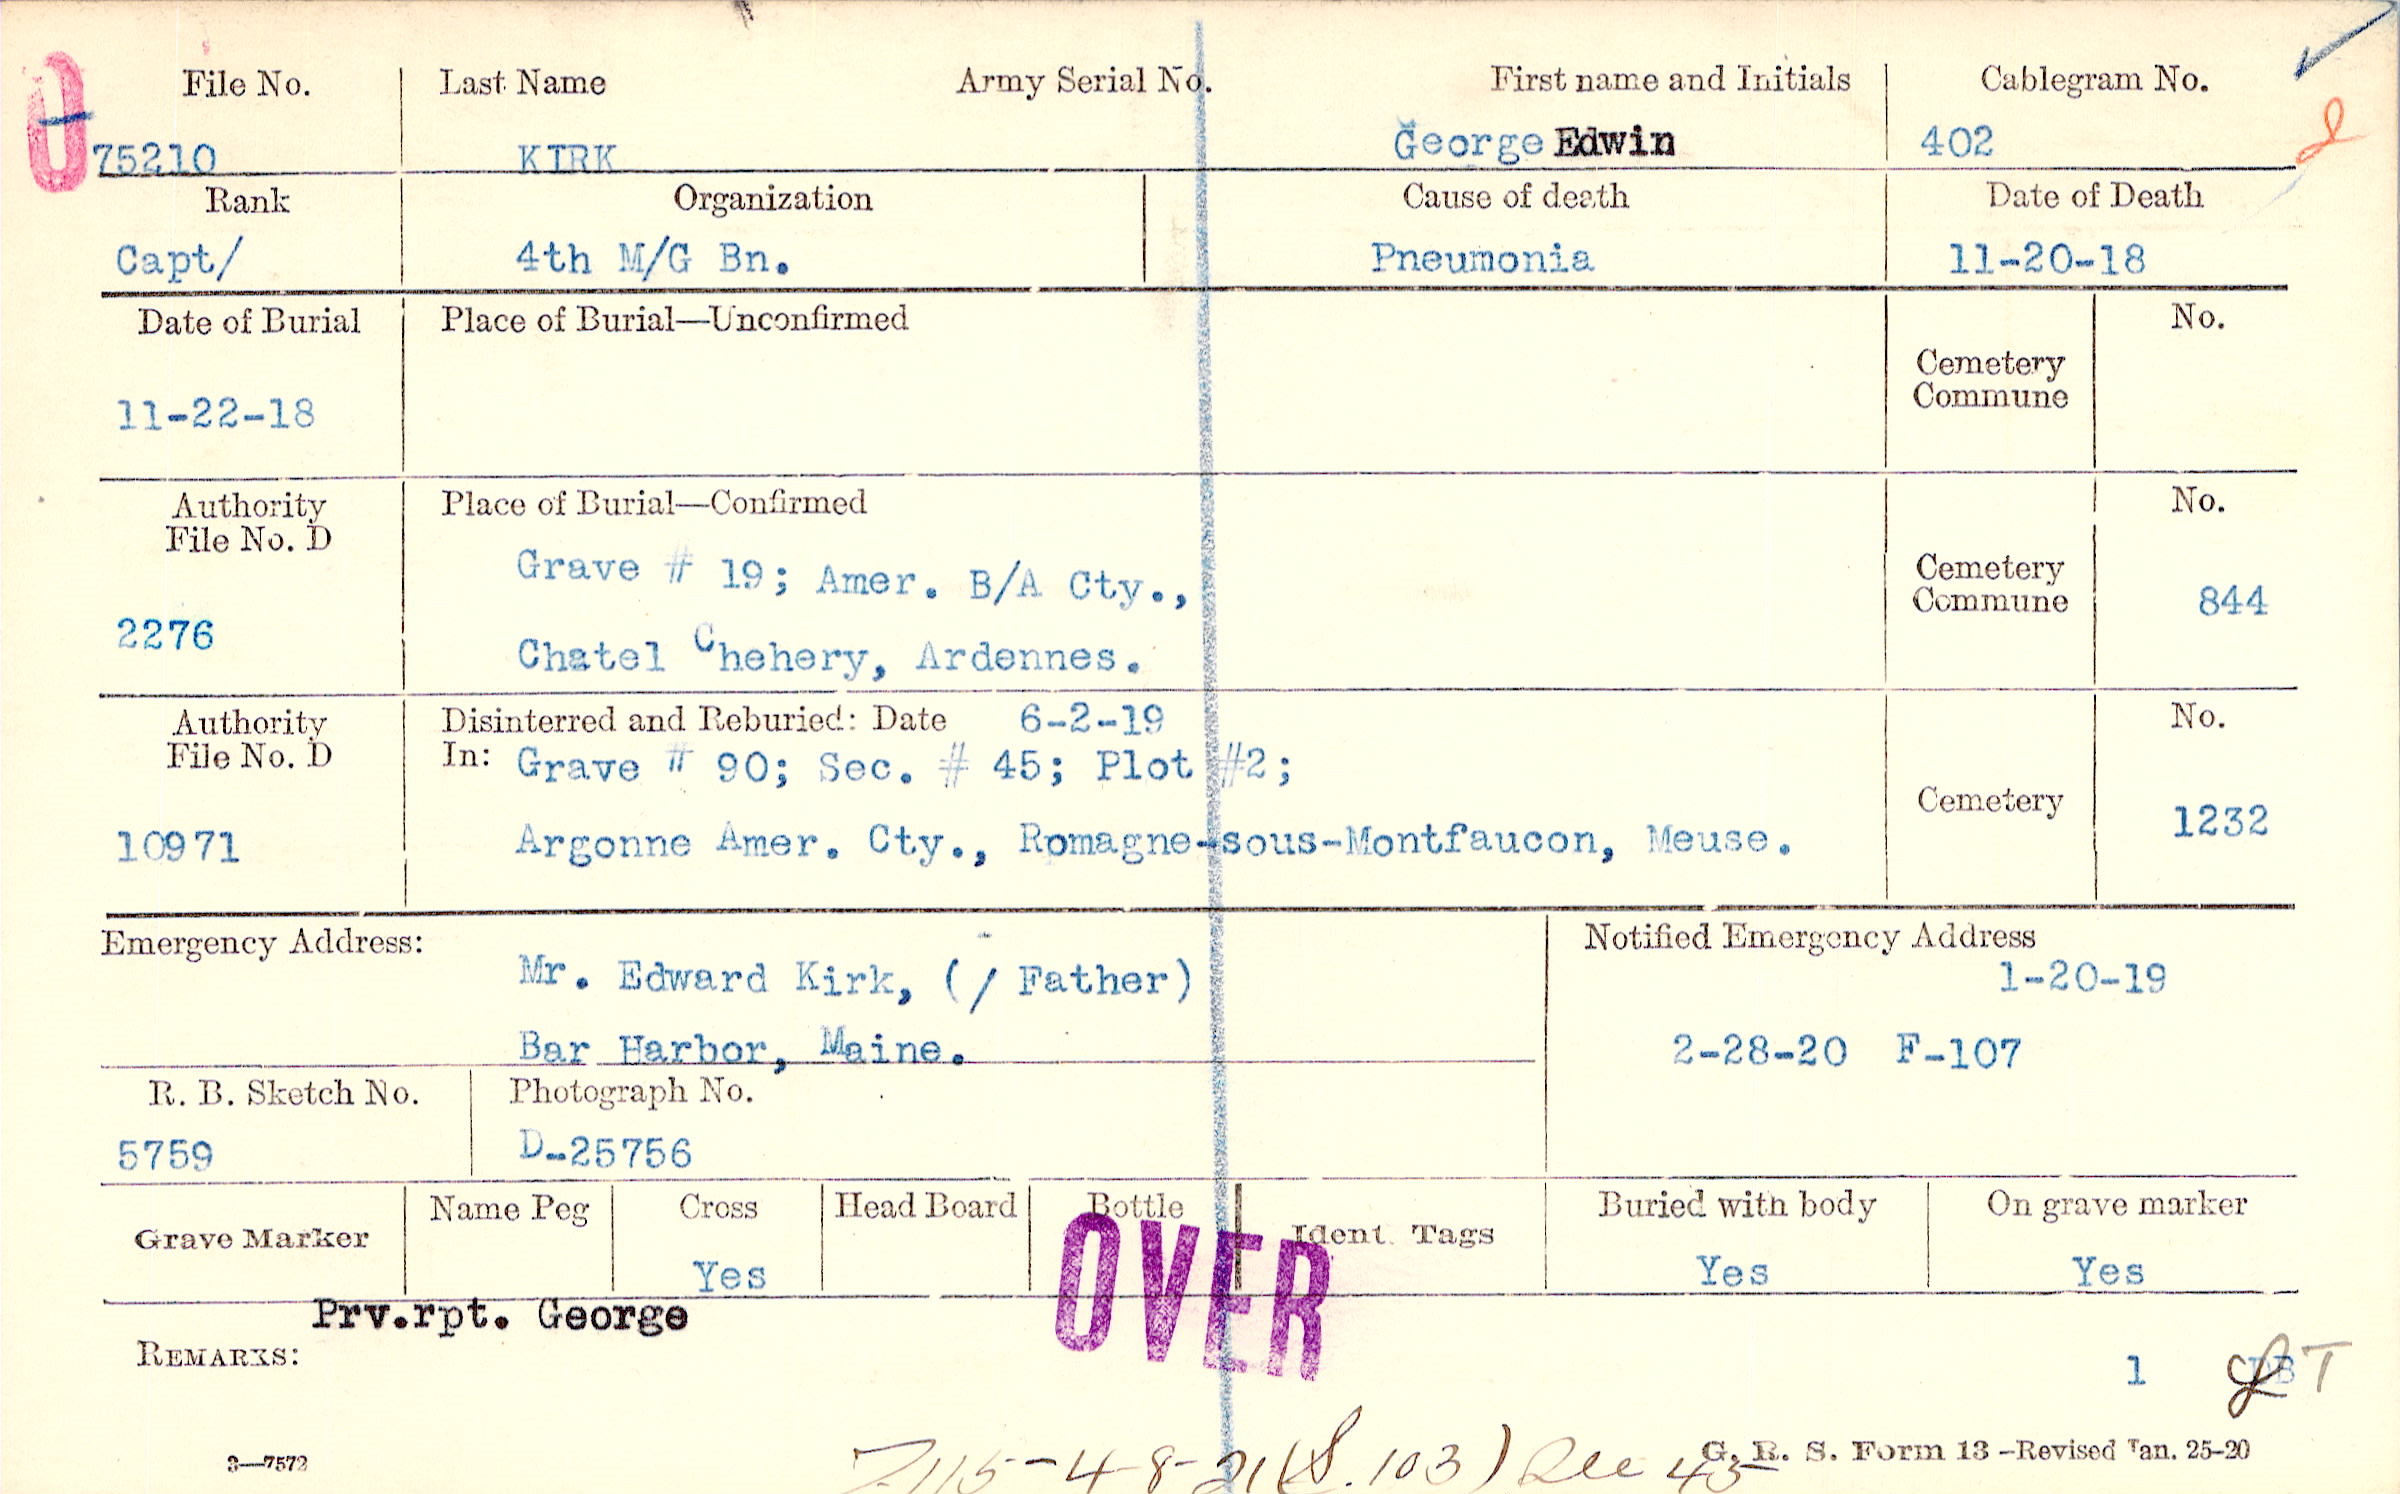 File No. Last Name Army Serial No. First name and Initials Cablegram No.
75210 KIRK George Edwin 402
Rank Organization Cause of death Date of Death
Capt/ 4th M/G Bn. Pneumonia 11-20-18
Date of Burial Place of Burial—Unconfirmed No.
Cemetery
Commune
11-22-18
Authority Place of Burial—Confirmed No.
File No. D
Grave # 19; Amer. B/A Cty., Cemetery
Commune 844
2276
Chatel Chehery, Ardennes.
Authority Disinterred and Reburied: Date 6-2-19 No.
File No. D In: Grave # 90; Sec. # 45; Plot #2;
Cemetery
10971 Argonne Amer. Cty., Romagne-sous-Montfaucon, Meuse. 1232
Emergency Address: Notified Emergency Address
Mr. Edward Kirk, (/ Father) 1-20-19
Bar Harbor, Maine. 2-28-20 F-107
R. B. Sketch No. Photograph No.
5759 D-25756
Grave Marker Name Peg Cross Head Board Bottle Ident. Tags Buried with body On grave marker
Yes Yes Yes
OVER
Prv.rpt. George
REMARKS:
1 T
3—7572 4-8-21 (S.103) Dec 45 G. R. S. Form 13 -Revised Jan. 25-20